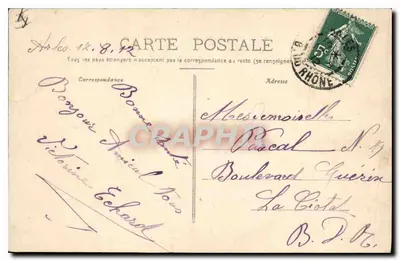 Arles 12.8.12
CARTE POSTALE
Tous les pays étrangers n'acceptent pas la correspondance au recto (se renseigner
Correspondance
Adresse
Bonne Santé
Bonjour Amical
Victorine Echard
Mesdemoiselles
Pascal N. 19
Boulevard Guérin
La Ciotat
B. D. R.
5c
RHONE
CPARHAMA